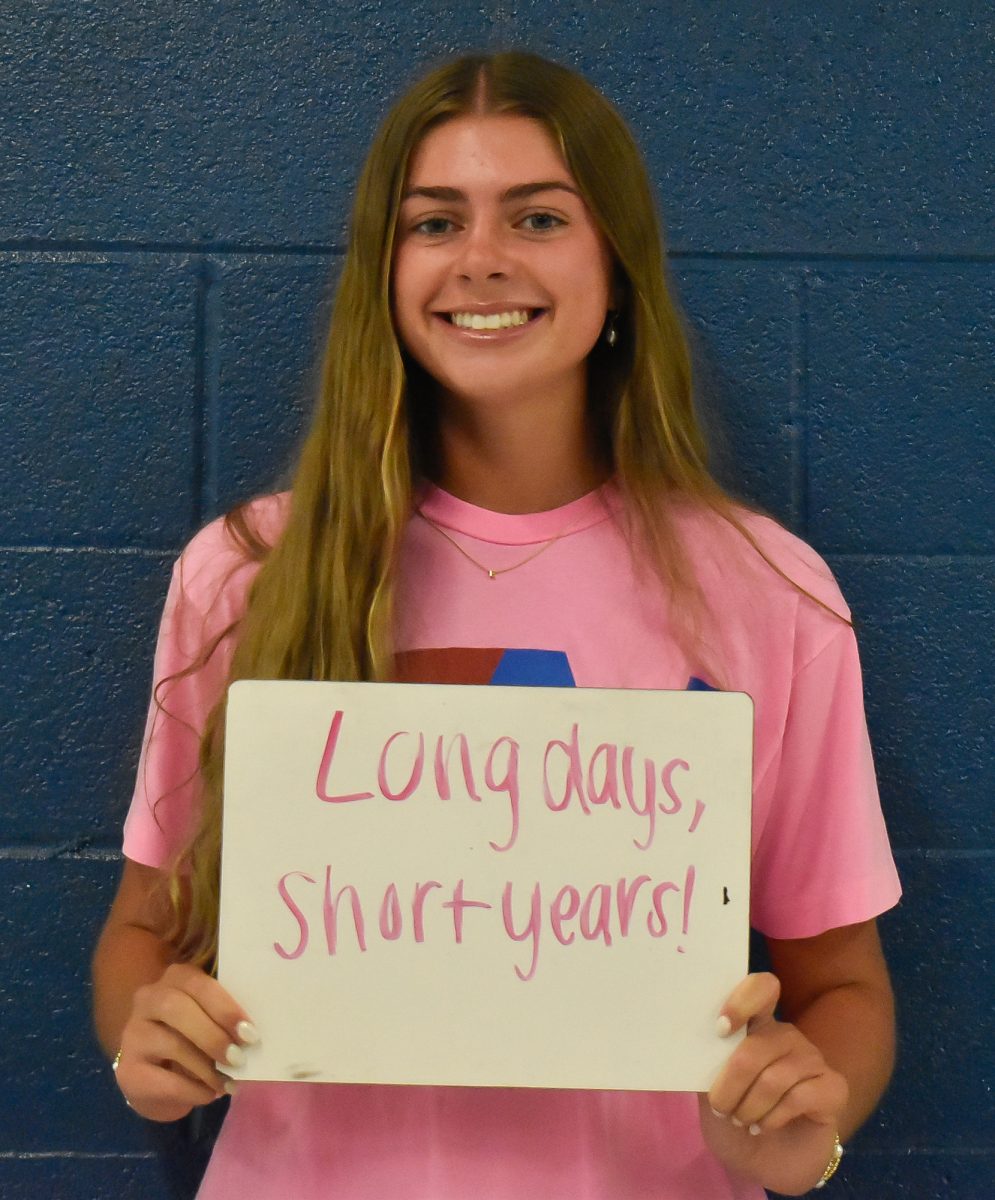 Long days,
Short years!